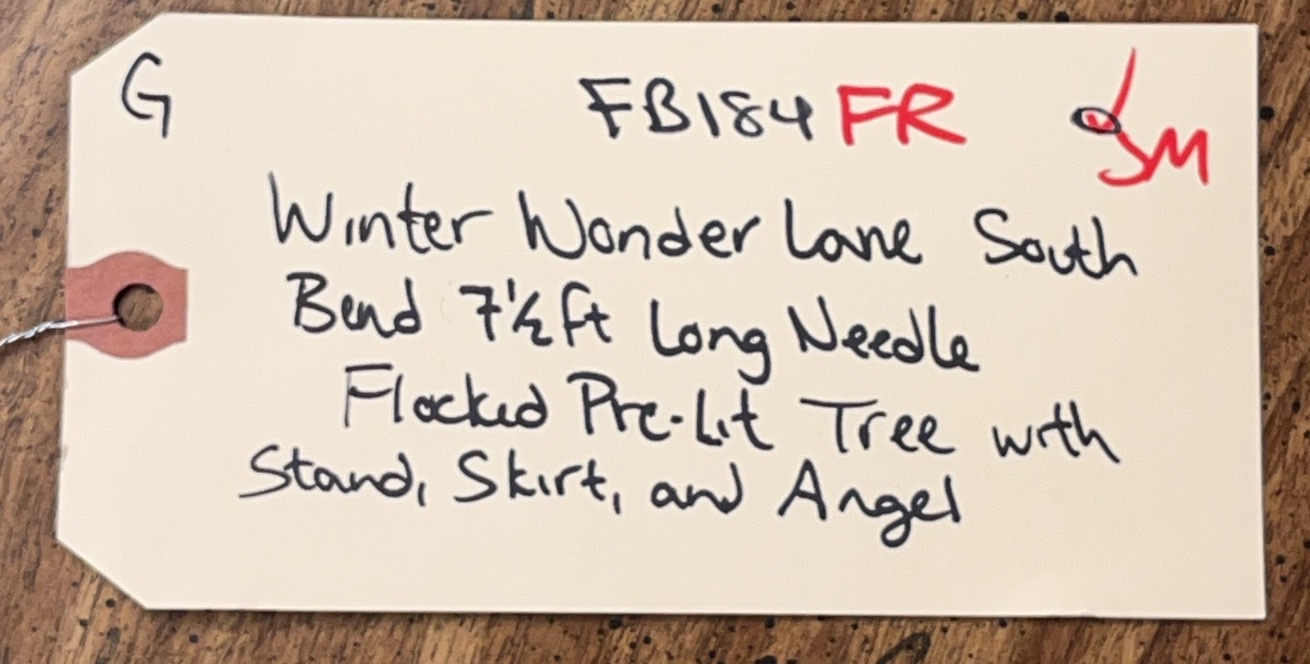 G FB184 FR SM
Winter Wonder Lane South
Bend 7 1/2 ft Long Needle
Flocked Pre-Lit Tree with
Stand, Skirt, and Angel